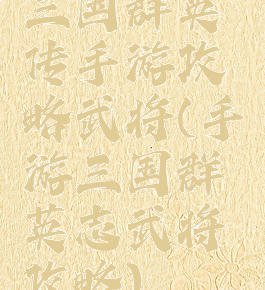 三国群英
传手游攻
略武将(手
游三国群
英志武将
攻略)